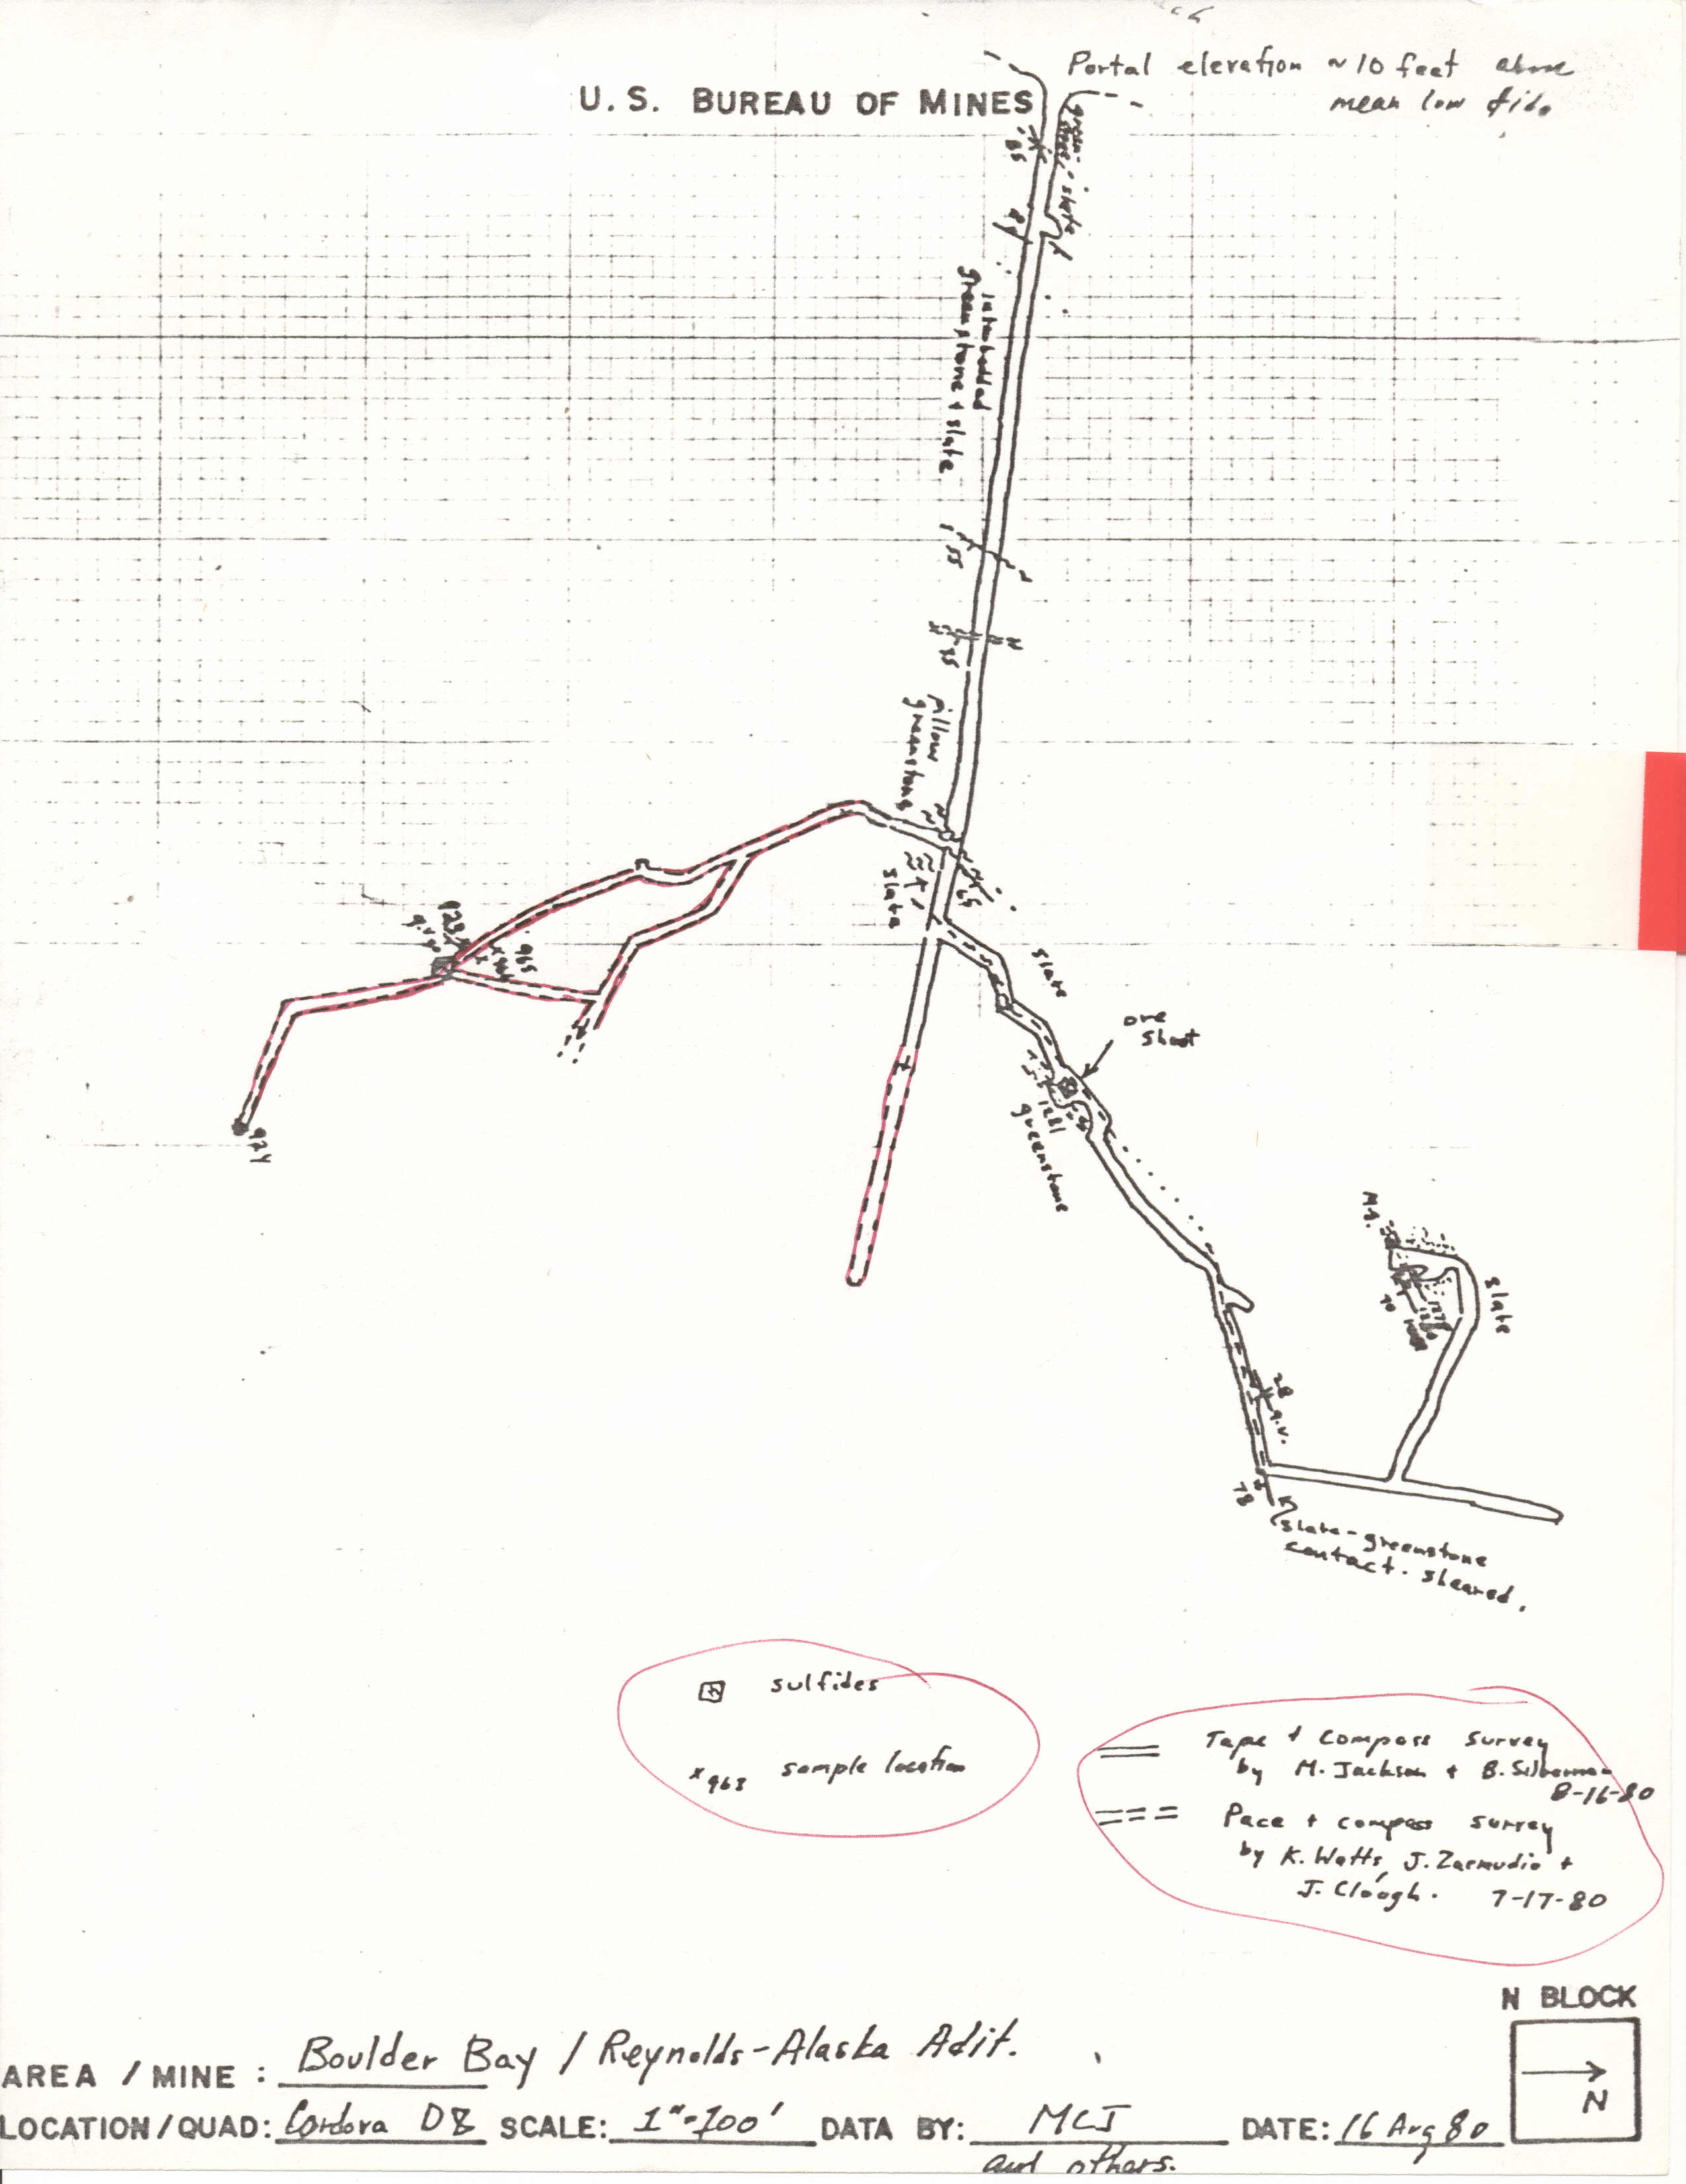 Portal elevation ~10 feet above
mean low tide
U.S. BUREAU OF MINES
green-
stone
slate
85
interbedded
greenstone + slate
55
85
pillow
greenstone
slate
65
slate
ore
shoot
1281
greenstone
923
q.v.
965
924
slate
28
q.v.
78
slate-greenstone
contact. sheared.
sulfides
x963 sample location
Tape + Compass survey
by M. Jackson + B. Silberman
8-16-80
Pace + compass survey
by K. Watts, J. Zarmudio +
J. Clough. 7-17-80
N BLOCK
N
AREA / MINE : Boulder Bay / Reynolds-Alaska Adit.
LOCATION/QUAD: Cordova D8 SCALE: 1"=100' DATA BY: MCJ DATE: 16 Aug 80
and others.